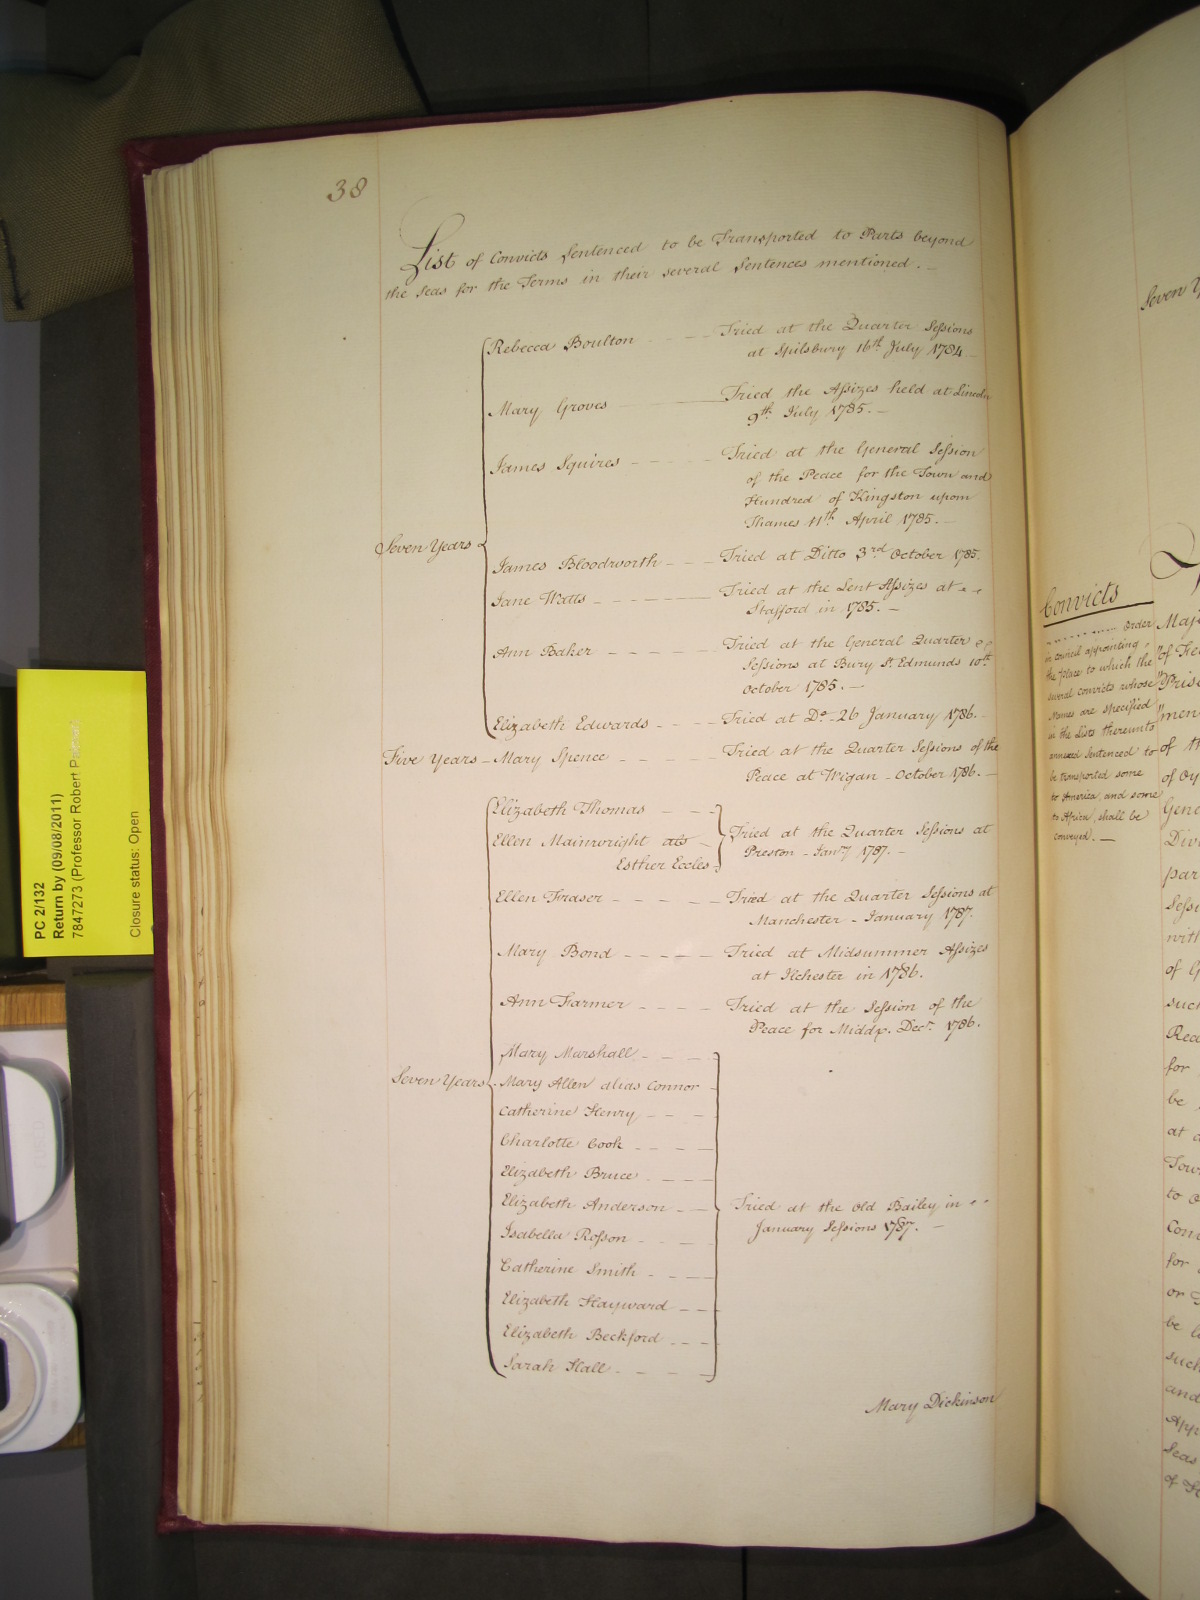 38
List of Convicts Sentenced to be Transported to Parts beyond
the Seas for the Terms in their several Sentences mentioned. –
Rebecca Boulton - - - - Tried at the Quarter Sessions
at Spilsbury 16th July 1784 –
Mary Groves Tried the Assizes held at Lincoln
9th July 1785. –
James Squires - - - - Tried at the General Session
of the Peace for the Town and
Hundred of Kingston upom
Thames 11th April 1785. –
Seven Years
James Bloodworth - - - Tried at Ditto 3rd October 1785.
Jane Watts - - - - Tried at the Lent Assizes at
Stafford in 1785. –
Ann Baker - - - - - Tried at the General Quarter
Sessions at Bury St. Edmunds 10th
October 1785. –
Elizabeth Edwards - - - - Tried at Do. 26 January 1786.
Five Years – Mary Spence - - - - - Tried at the Quarter Sessions of the
Peace at Wigan – October 1786. –
Elizabeth Thomas - - -
Ellen Mainwright als
Esther Eccles
Tried at the Quarter Sessions at
Preston – Janry 1787. –
Ellen Fraser - - - - - Tried at the Quarter Sessions at
Manchester – January 1787.
Mary Bond - - - - - Tried at Midsummer Assizes
at Ilchester in 1786.
Ann Farmer - - - - Tried at the Session of the
Peace for Middx. Decr. 1786.
Mary Marshall - - - -
Seven Years Mary Allen alias Connor -
Catherine Henry - - - -
Charlotte Cook - - - -
Elizabeth Bruce - - - -
Elizabeth Anderson - - -
Tried at the Old Bailey in
January Sessions 1787. –
Isabella Rosson - - - -
Catherine Smith - - - -
Elizabeth Hayward - - -
Elizabeth Beckford - - - -
Sarah Hall - - - -
Mary Dickinson
Seven
Convicts
Order
in Council appointing
the Place to which the
several Convicts whose
Names are specified
in the Lists thereunto
annexed Sentenced to
be transported some
to America, and some
to Africa, shall be
conveyed. –
PC 2/132
Return by (09/08/2011)
7847273 (Professor Robert Palmer)
Closure status: Open